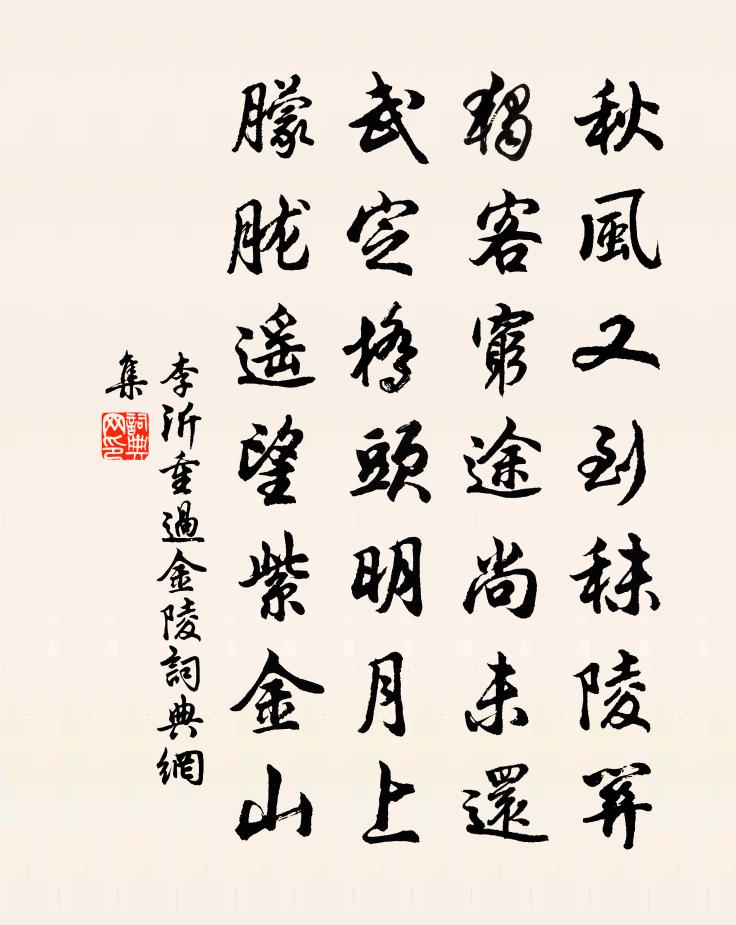 秋風又到秣陵關
獨客窮途尚未還
武定橋頭明月上
朦朧遥望紫金山
李沂重過金陵詞典網
集
詞典
网印